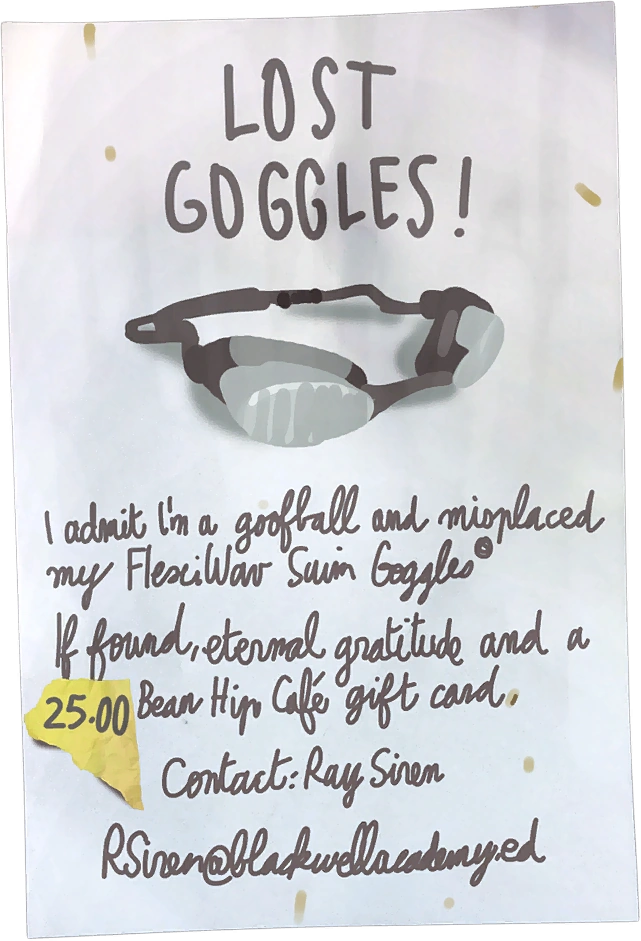 LOST
GOGGLES!
I admit I'm a goofball and misplaced
my FlexiWav Swim Goggles®
If found, eternal gratitude and a
25.00 Bean Hip Café gift card.
Contact: Ray Siren
RSiren@blackwellacademy.ed